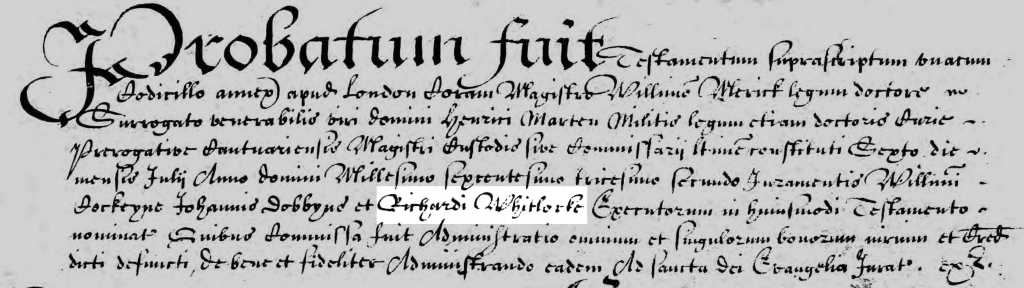 Probatum fuit Testamentum suprascriptum unacum
Codicillo annex) apud London Coram Magistro Willimo Merick legum doctore
Surrogato venerabilis viri domini Henrici Marten Militis legum etiam doctoris Curie
Prerogative Cantuariensis Magistri Custodis sive Commissarii ltime constituti Sexto die
mensis Julii Anno domini Millesimo sexcentesimo tricesimo secundo Juramentis Willimi
Cockeyne Johannis Dobbyns et Richardi Whitlocke Executorum in huiusmodi Testamento
nominat Quibus Comissa fuit Administratio omnium et singulorum bonorum iurium et Cred
dicti defuncti, de bene et fideliter Administrando eadem Ad sancta dei Evangelia Jurat. ex